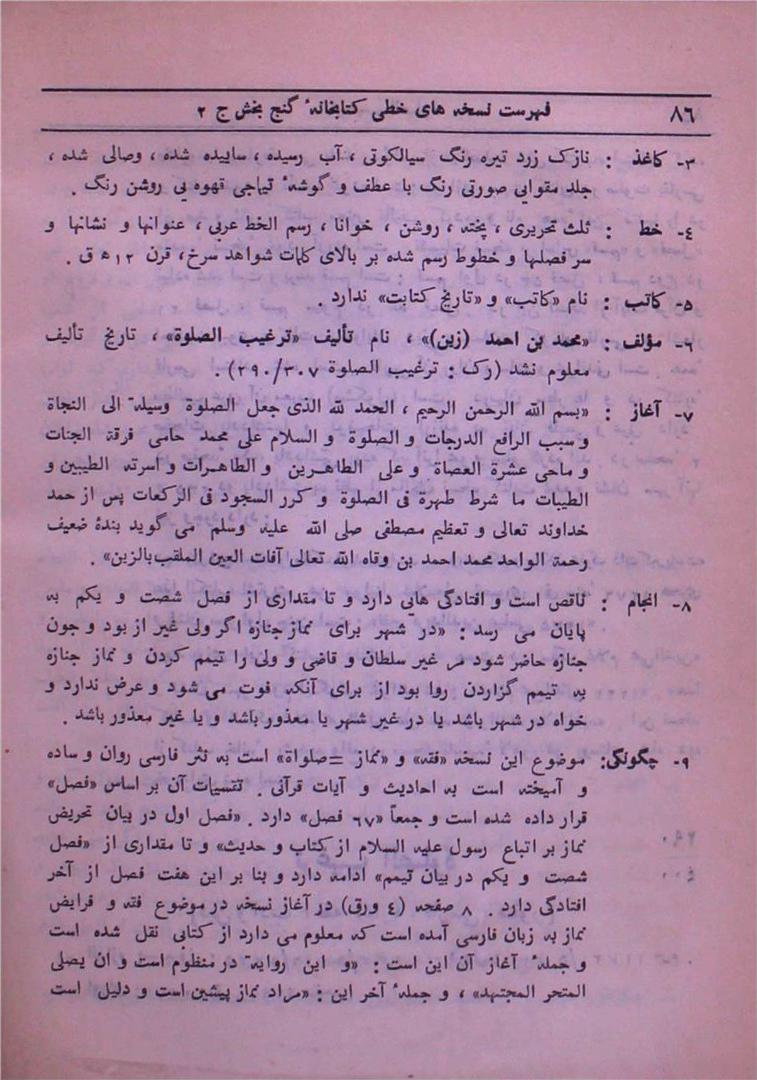 ۸۶
فهرست نسخه های خطی کتابخانهٔ گنج بخش ج ۲
۳- کاغذ : نازک زرد تیره رنگ سیالکوتی ، آب رسیده ، ساییده شده ، وصالی شده ،
جلد مقوایی صورتی رنگ با عطف و گوشهٔ تیماجی قهوه یی روشن رنگ .
۴- خط : ثلث تحریری ، پخته ، روشن ، خوانا ، رسم الخط عربی ، عنوانها و نشانها و
سر فصلها و خطوط رسم شده بر بالای کلمات شواهد سرخ، قرن ۱۲ ه ق .
۵- کاتب : نام «کاتب» و «تاریخ کتابت» ندارد .
۶- مؤلف : «محمد بن احمد (زین)» ، نام تألیف «ترغیب الصلوة» ، تاریخ تألیف
معلوم نشد (رک : ترغیب الصلوة ۲۹۰/۳۰۷) .
۷- آغاز : «بسم الله الرحمن الرحیم ، الحمد لله الذی جعل الصلوة وسیلة الی النجاة
و سبب الرافع الدرجات و الصلوة و السلام علی محمد حامی فرقة الجنات
و ماحی عشرة العصاة و علی الطاهرین و الطاهرات و اسرته الطیبین و
الطیبات ما شرط طهرة فی الصلوة و کرر السجود فی الرکعات پس از حمد
خداوند تعالی و تعظیم مصطفی صلی الله علیه وسلم می گوید بندهٔ ضعیف
رحمة الواحد محمد احمد بن وقاه الله تعالی آفات العین الملقب بالزین» .
۸- انجام : ناقص است و افتادگی هایی دارد و تا مقداری از فصل شصت و یکم به
پایان می رسد : «در شهر برای نماز جنازه اگر ولی غیر از بود و جون
جنازه حاضر شود مر غیر سلطان و قاضی و ولی را تیمم کردن و نماز جنازه
به تیمم گزاردن روا بود از برای آنکه فوت می شود و عرض ندارد و
خواه در شهر باشد یا در غیر شهر یا معذور باشد و یا غیر معذور باشد .
۹- چگونگی: موضوع این نسخه «فقه» و «نماز =صلواة» است به نثر فارسی روان و ساده
و آمیخته است به احادیث و آیات قرآنی . تقسیمات آن بر اساس «فصل»
قرار داده شده است و جمعاً «۶۷ فصل» دارد . «فصل اول در بیان تحریض
نماز بر اتباع رسول علیه السلام از کتاب و حدیث» و تا مقداری از «فصل
شصت و یکم در بیان تیمم» ادامه دارد و بنا بر این هفت فصل از آخر
افتادگی دارد . ۸ صفحه (۴ ورق) در آغاز نسخه در موضوع فقه و فرایض
نماز به زبان فارسی آمده است که معلوم می دارد از کتابی نقل شده است
و جملهٔ آغاز آن این است : «و این روایة در منظوم است و ان یصلی
المتحر المجتهد» ، و جملهٔ آخر این : «مراد نماز پیشین است و دلیل است